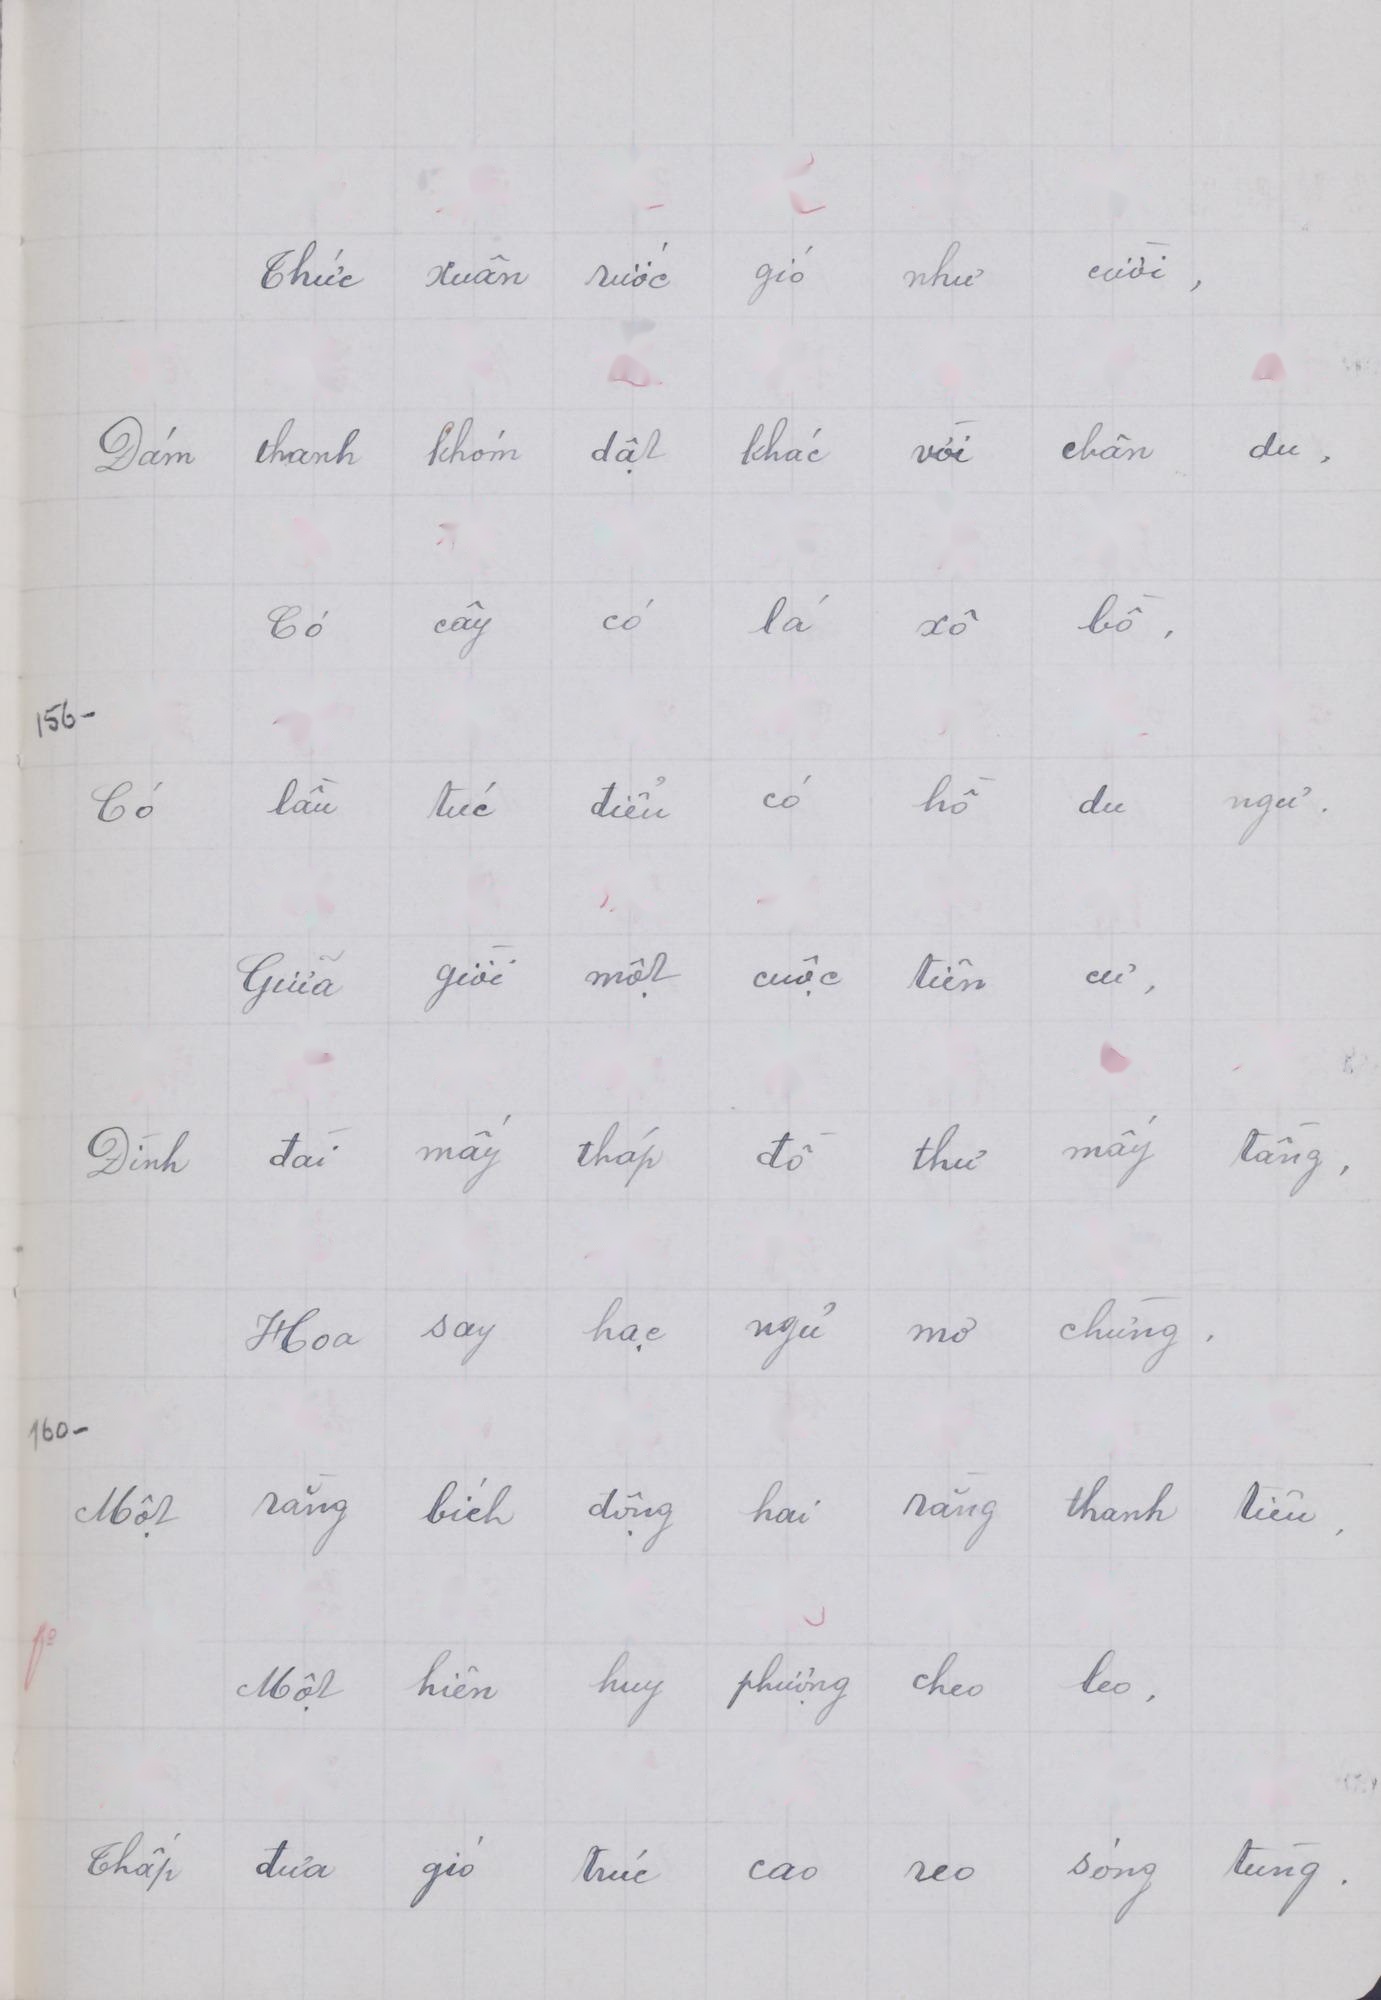 Thức xuân rước gió như cười,
Dám thanh khóm dật khác vời chân du,
Có cây có lá xô bồ,
156-
Có lầu tuć điểu có hồ du ngư.
Giữa giời một cuộc tiên cư,
Đình đài mấy tháp đồ thư mấy tầng,
Hoa say hạc ngủ mơ chừng,
160-
Một rằng bích động hai rằng thanh tiêu,
Một hiên huy phượng cheo leo,
Thấp đưa gió trúc cao reo sóng tùng.